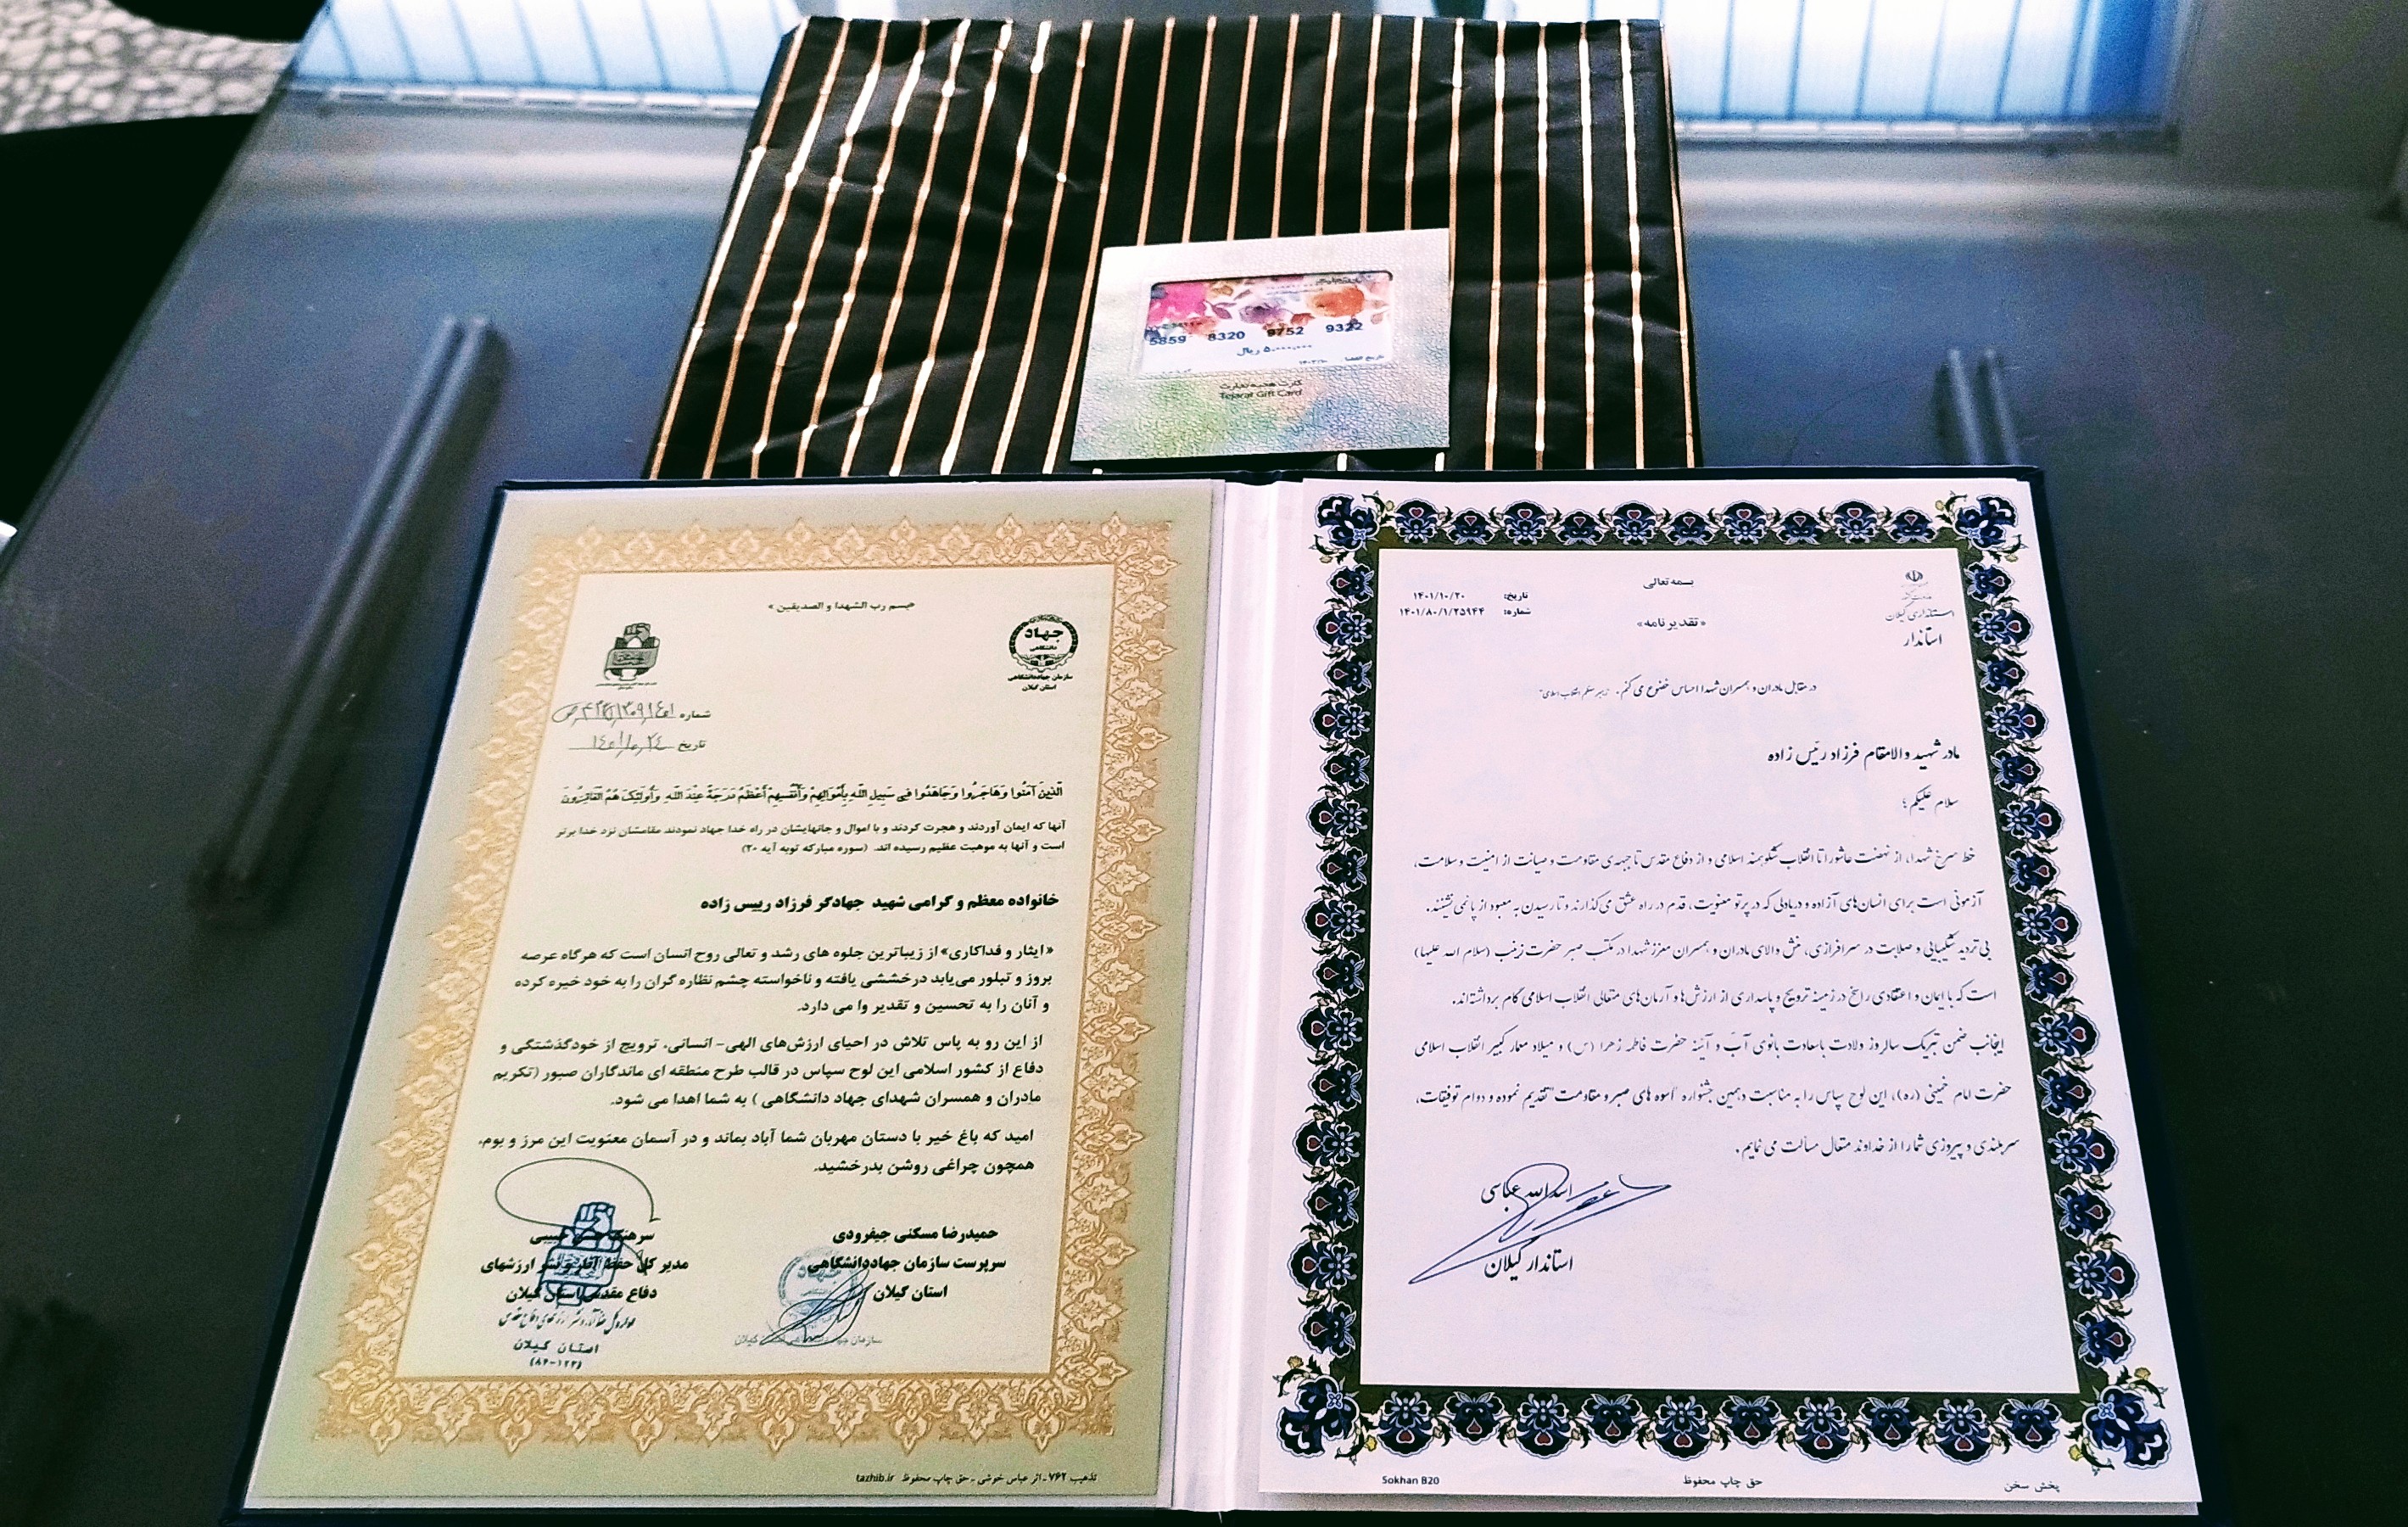 5859 8320 9752 9322
۵۰،۰۰۰،۰۰۰ ریال
تاریخ انقضا
کارت هدیه تجارت
Tejarat Gift Card
بسمه تعالی
تاریخ: ۱۴۰۱/۱۰/۲۰
شماره: ۱۴۰۱/۸۰/۱/۲۵۹۴۴
استانداری گیلان
استاندار
«تقدیرنامه»
در مقابل مادران و همسران شهدا احساس خضوع می کنم. "رهبر معظم انقلاب اسلامی"
مادر شهید والامقام فرزاد رئیس زاده
سلام علیکم؛
خط سرخ شهدا، از نهضت عاشورا تا انقلاب شکوهمند اسلامی و از دفاع مقدس تا جبهه‌ی مقاومت و صیانت از امنیت و سلامت،
آزمونی است برای انسان‌های آزاده و دریادلی که در پرتو معنویت، قدم در راه عشق می‌گذارند و تا رسیدن به معبود از پا نمی‌نشینند.
بی‌تردید شکیبایی و صلابت در سرافرازی، منش والای مادران و همسران معزز شهدا در مکتب صبر حضرت زینب (سلام الله علیها)
است که با ایمان و اعتقادی راسخ در زمینه ترویج و پاسداری از ارزش‌ها و آرمان‌های متعالی انقلاب اسلامی گام برداشته‌اند.
اینجانب ضمن تبریک سالروز ولادت باسعادت بانوی آب و آئینه حضرت فاطمه زهرا (س) و میلاد معمار کبیر انقلاب اسلامی
حضرت امام خمینی (ره)، این لوح سپاس را به مناسبت دهمین جشنواره "اسوه های صبر و مقاومت" تقدیم نموده و دوام توفیقات،
سربلندی و پیروزی شما را از خداوند متعال مسألت می نمایم.
اسدالله عباسی
استاندار گیلان
پخش سخن
حق چاپ محفوظ
Sokhan B20
«بسم رب الشهدا و الصدیقین»
جهاد
دانشگاهی
سازمان جهاددانشگاهی
استان گیلان
شماره
تاریخ ۱۴۰۱/۱۰/۲۴
الَّذِينَ آمَنُوا وَهَاجَرُوا وَجَاهَدُوا فِي سَبِيلِ اللَّهِ بِأَمْوَالِهِمْ وَأَنْفُسِهِمْ أَعْظَمُ دَرَجَةً عِنْدَ اللَّهِ وَأُولَئِكَ هُمُ الْفَائِزُونَ
آنها که ایمان آوردند و هجرت کردند و با اموال و جانهایشان در راه خدا جهاد نمودند مقامشان نزد خدا برتر
است و آنها به موهبت عظیم رسیده اند. (سوره مبارکه توبه آیه ۲۰)
خانواده معظم و گرامی شهید جهادگر فرزاد رییس زاده
«ایثار و فداکاری» از زیباترین جلوه های رشد و تعالی روح انسان است که هرگاه عرصه
بروز و تبلور می‌یابد درخششی یافته و ناخواسته چشم نظاره گران را به خود خیره کرده
و آنان را به تحسین و تقدیر وا می دارد.
از این رو به پاس تلاش در احیای ارزش‌های الهی- انسانی، ترویج از خودگذشتگی و
دفاع از کشور اسلامی این لوح سپاس در قالب طرح منطقه ای ماندگاران صبور (تکریم
مادران و همسران شهدای جهاد دانشگاهی ) به شما اهدا می شود.
امید که باغ خیر با دستان مهربان شما آباد بماند و در آسمان معنویت این مرز و بوم،
همچون چراغی روشن بدرخشید.
حمیدرضا مسکنی جیفرودی
سرپرست سازمان جهاددانشگاهی
استان گیلان
سرهنگ
مدیر کل حفظ آثار و نشر ارزشهای
دفاع مقدس استان گیلان
استان گیلان
تذهیب ۷۶۲ - اثر عباس خوشی - حق چاپ محفوظ tazhib.ir